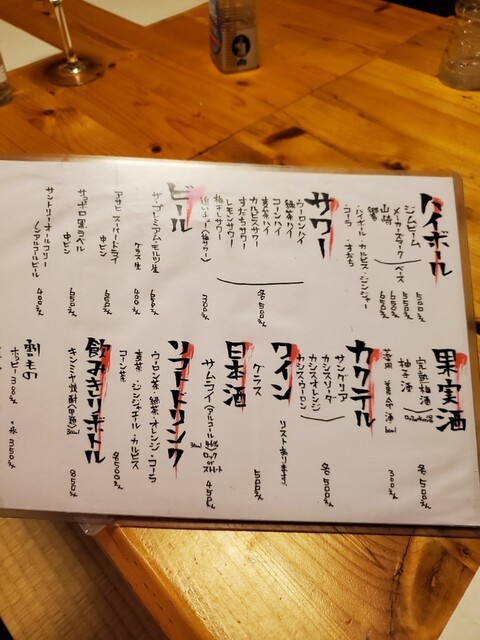 ハイボール
ジムビーム 500えん
メーカーズマーク 550えん
山崎 650えん
響 650えん
ベース
・ハイボール・カルピス・ジンジャー
・コーラ ・すだち
サワー
ウーロンハイ
緑茶ハイ
コーンハイ
青茶ハイ
カルピスサワー
すだちサワー
レモンサワー
梅干しサワー
各500えん
追いチュー(梅サワー) 300
ビール
ザ・プレミアムモルツ 生 650えん
グラス生 400えん
アサヒスーパードライ
中ビン 650えん
サッポロ黒ラベル
中ビン 650えん
サントリーオールフリー
ノンアルコールビール 400えん
果実酒
完熟梅酒
柚子酒
各500えん
薬用 養命酒 300えん
カクテル
サングリア
カシスソーダ
カシスオレンジ
カシスウーロン
各500えん
ワイン
リストあります、
グラス 500えん
日本酒
サムライ(アルコール
ロック
or
ストレート
450えん
ソフトドリンク
ウーロン茶 緑茶・オレンジ・コーラ
青茶・ジンジャエール・カルピス
コーン茶 各500えん
飲みきりボトル
キンミヤ焼酎 850
割もの
ホッピー300えん ・氷 350えん